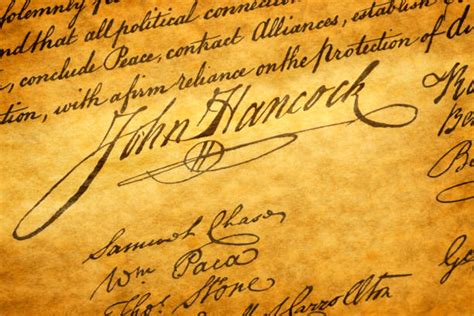 olemnly p
nd that all political connection
, conclude Peace, contract Alliances, establish
tion, with a firm reliance on the Protection of di
John Hancock
H
Samuel Chase
Wm Paca
Thos Stone
Carrollton
Be
Be
Ge